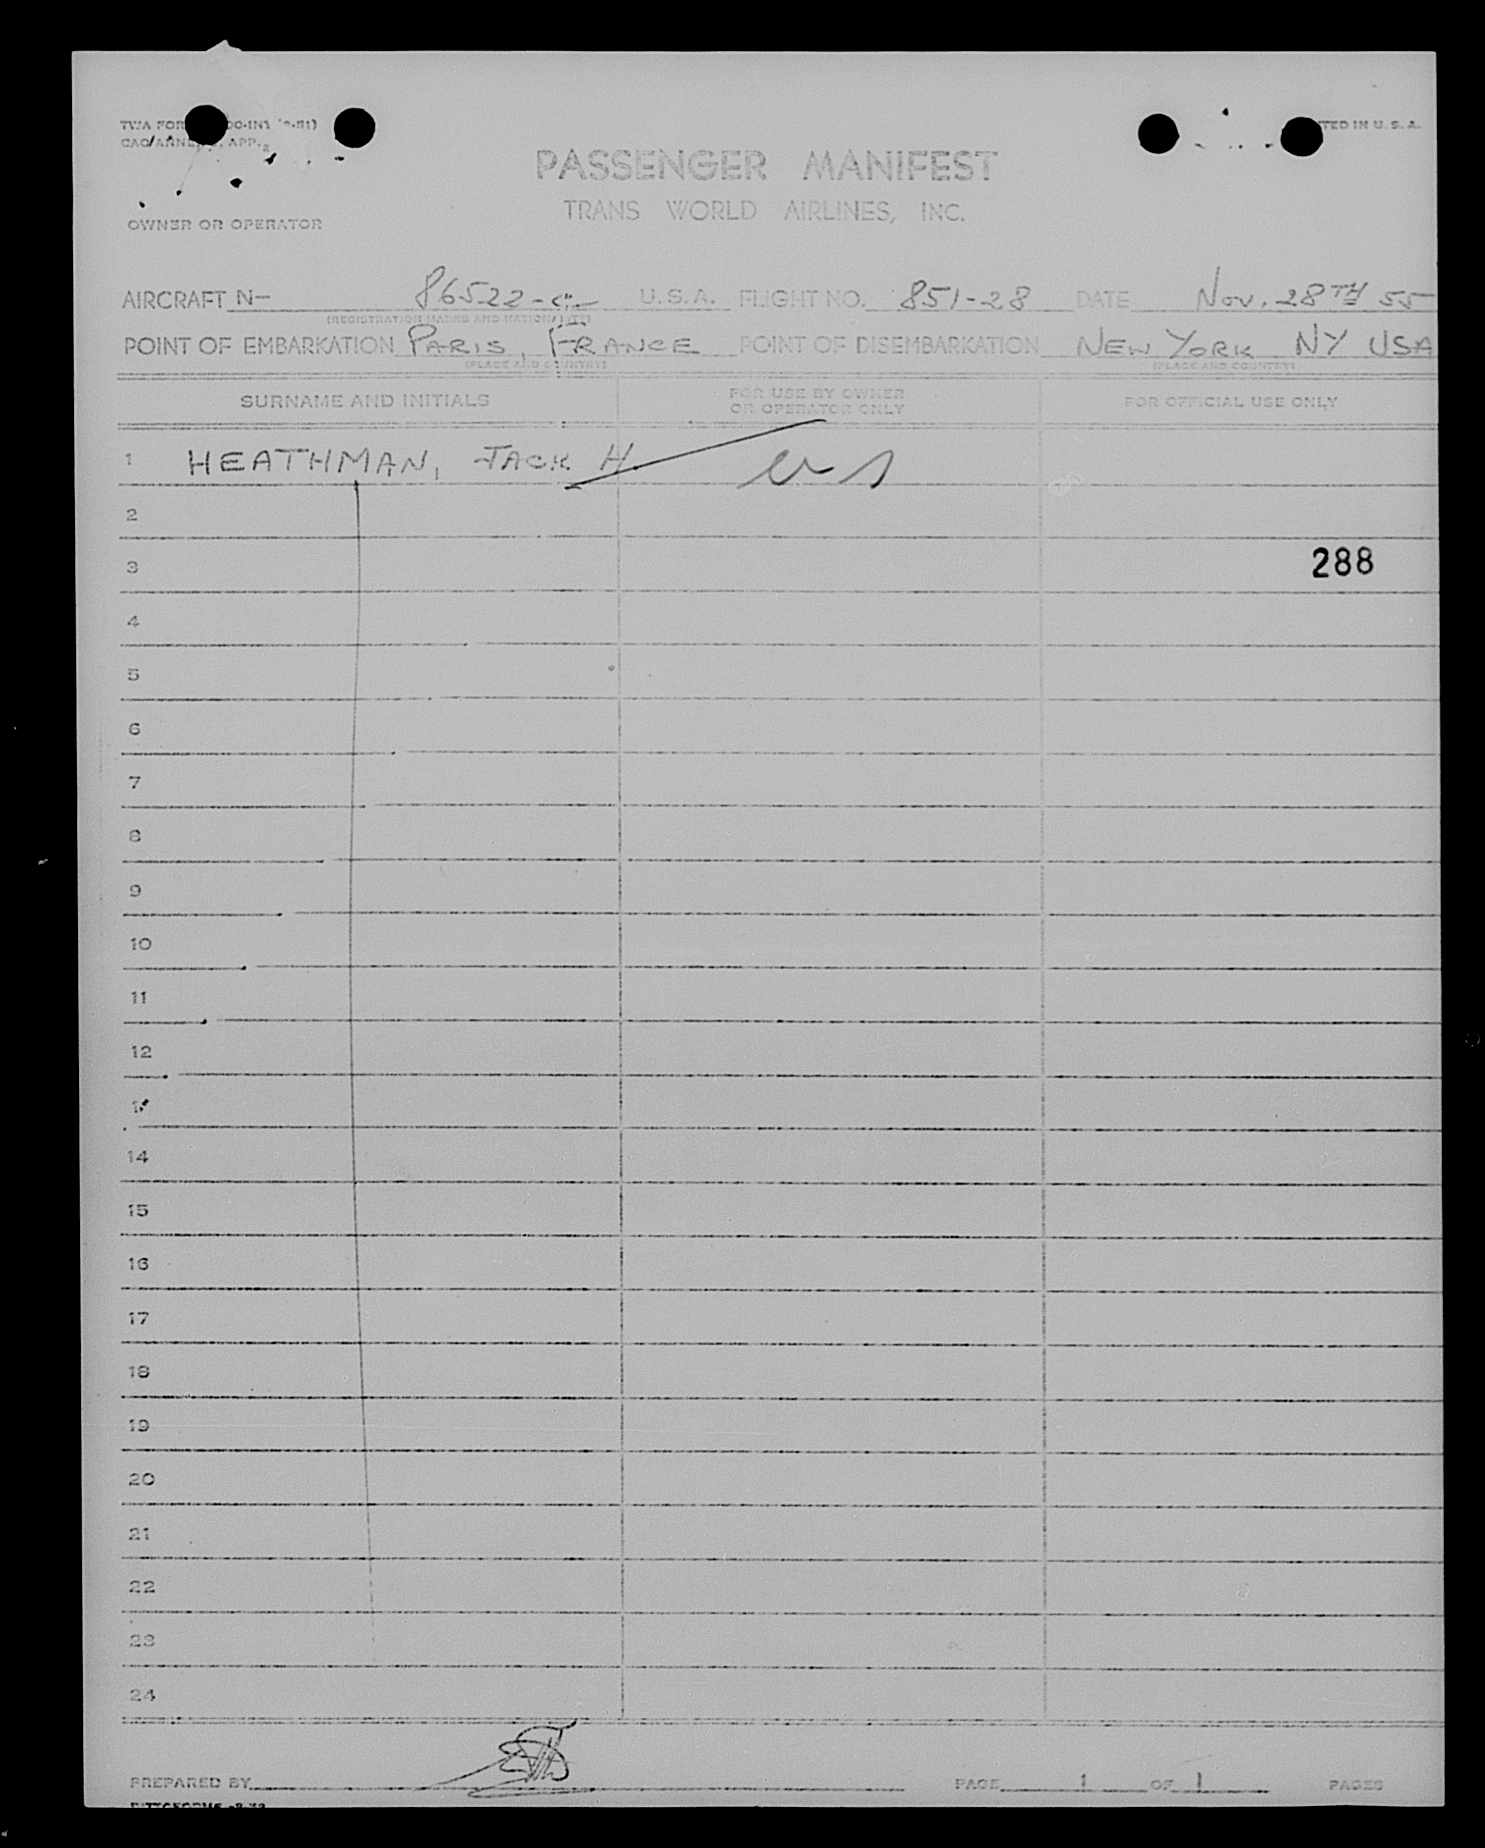 TWA FOR
PASSENGER MANIFEST
TRANS WORLD AIRLINES, INC.
OWNER OR OPERATOR
AIRCRAFT N- 86522 U.S.A. FLIGHT NO. 851-28 DATE Nov. 28TH 55
(REGISTRATION MARKS AND NATIONALITY)
POINT OF EMBARKATION PARIS, FRANCE POINT OF DISEMBARKATION NEW YORK NY USA
(PLACE AND COUNTRY) (PLACE AND COUNTRY)
SURNAME AND INITIALS FOR USE BY OWNER OR OPERATOR ONLY FOR OFFICIAL USE ONLY
1 HEATHMAN, JACK H.
2
3 288
4
5
6
7
8
9
10
11
12
14
15
16
17
18
19
20
21
22
23
24
PREPARED BY PAGE 1 OF 1 PAGES